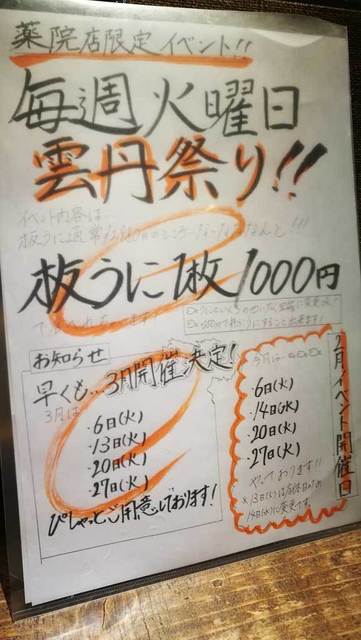 薬院店限定イベント!!
毎週火曜日
雲丹祭り!!
イベント内容は
板うに通常
板うに1枚1000円
お知らせ
早くも…3月開催決定!
3月は
・6日(火)
・13日(火)
・20日(火)
・27日(火)
ぴしゃっとご用意しております!
2月イベント開催日
・6日(火)
・14日(水)
・20日(火)
・27日(火)
やっております!!
※13日(火)は店休日のため
14日(水)に変更です。